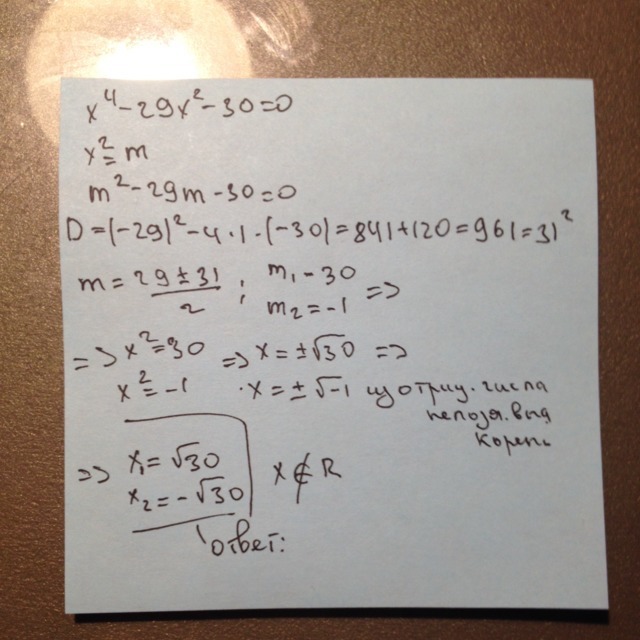 x⁴-29x²-30=0
x²=m
m²-29m-30=0
D=(-29)²-4·1·(-30)=841+120=961=31²
m=29±31/2; m₁=30
m₂=-1 =>
=> x²=30 => x=±√30 =>
x²=-1 · x=±√-1 из отриц. числа
корень
=> x₁=√30
x₂=-√30 x∉R
ответ: